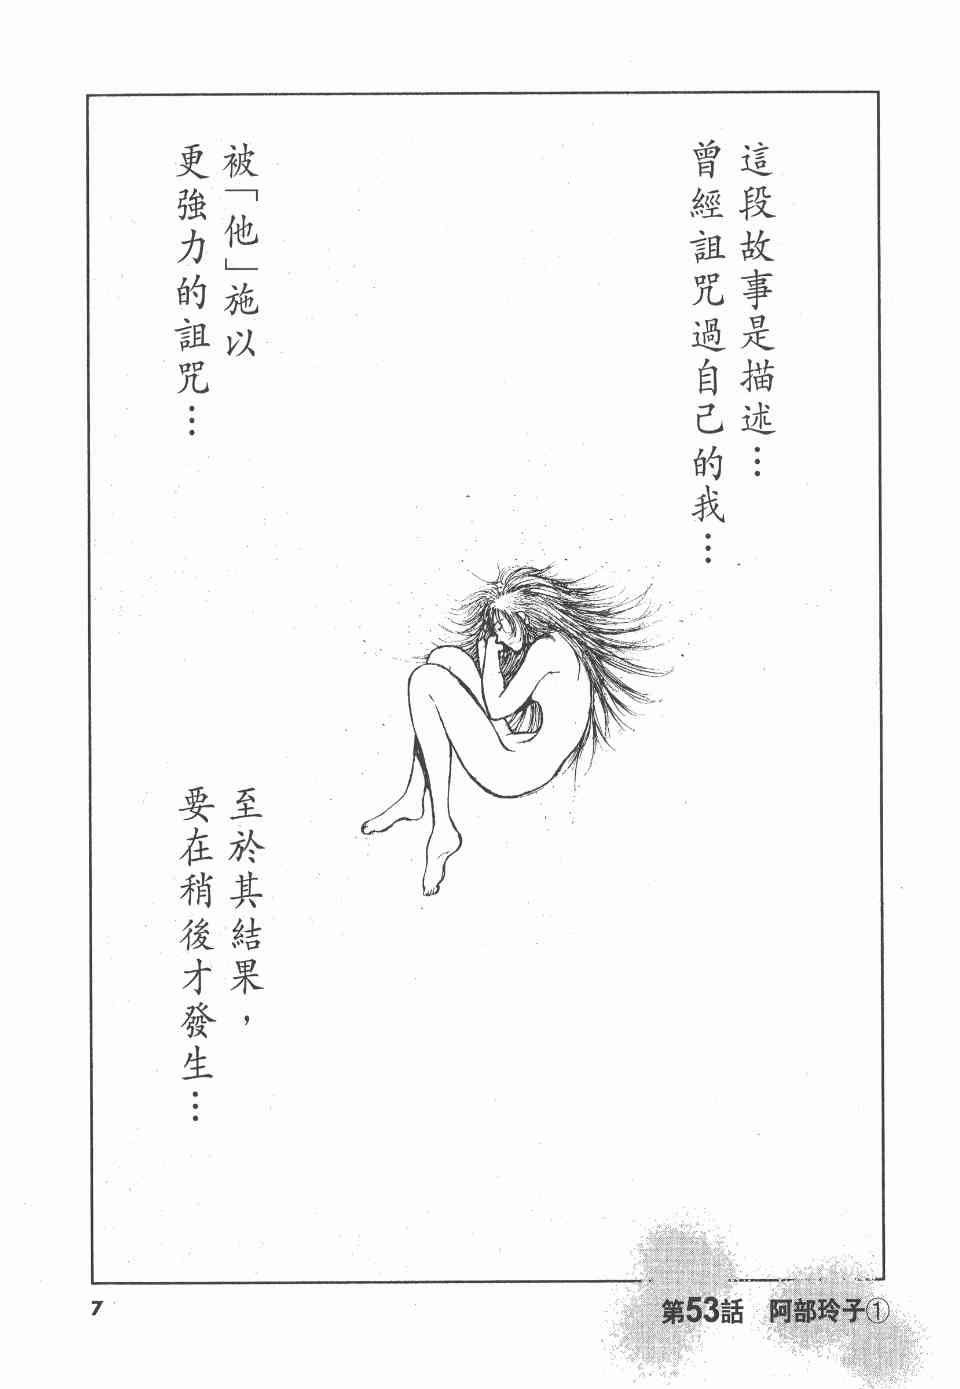 這段故事是描述…
曾經詛咒過自己的我…
被「他」施以
更強力的詛咒…
至於其結果，
要在稍後才發生…
7
第53話 阿部玲子①